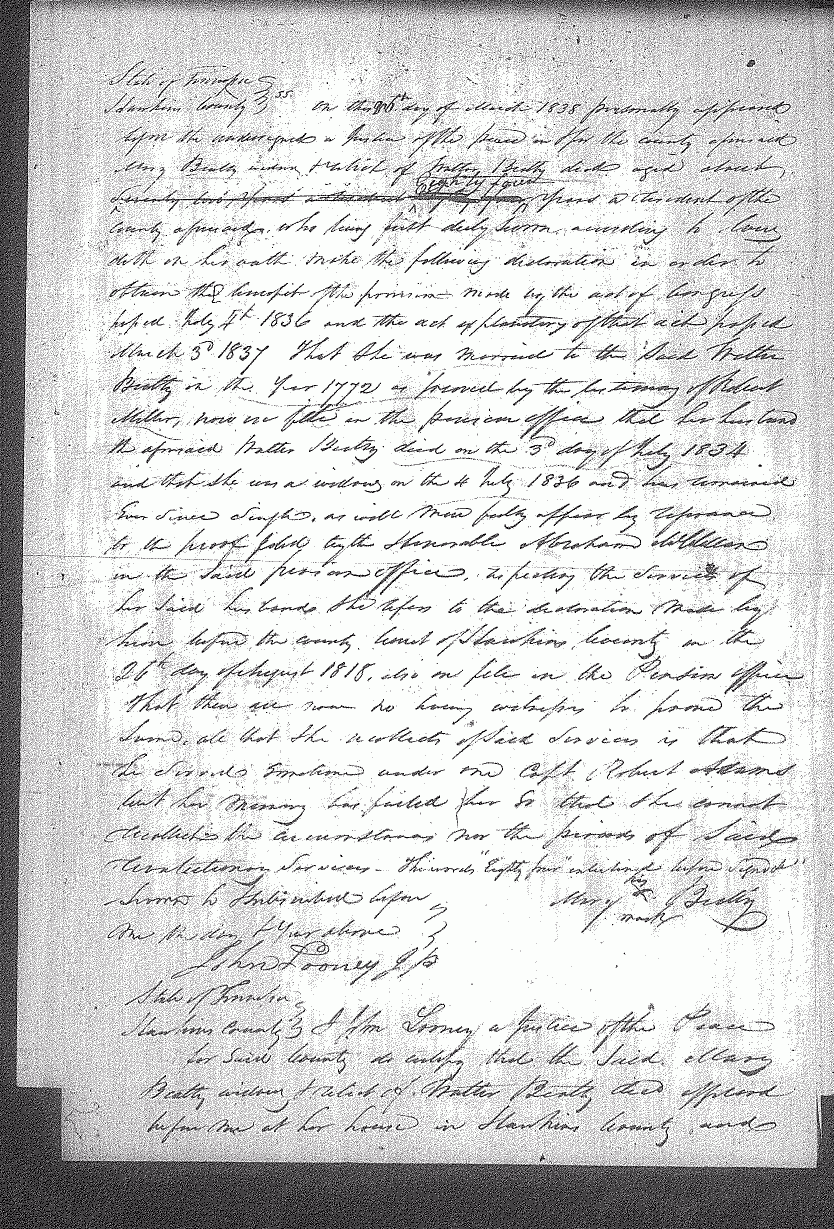 State of Tennessee
Hawkins County } SS On this 26th day of March 1838 personally appeared
before the undersigned a Justice of the peace in & for the county aforesaid
Mary Beatty widow & relict of Walter Beatty decd aged about
Eighty four
Seventy two years a resident years a resident of the
County aforesaid, who being first duly sworn, according to law
doth on her oath make the following declaration in order to
obtain the benefit of the provision made by the act of Congress
passed July 4th 1836 and the act explanatory of that act passed
March 3d 1837 That she was married to the said Walter
Beatty in the Year 1772 as proved by the testimony of Robert
Miller, now on file in the pension office that her husband
the aforesaid Walter Beatty died on the 3d day of July 1834
and that she was a widow on the 4 July 1836 and has remained
Ever Since Single, as will more fully appear by reference
to the proof filed by the Honorable Abraham McClellan
in the Said pension office, respecting the Services of
her Said husbands She refers to the declaration made by
him before the county Court of Hawkins County on the
26th day of August 1818, also on file in the Pension office
That there are now no living witnesses to prove the
Same, all that She recollects of Said Services is that
he Served Sometime under one Capt Robert Adams
but her memory has failed her So that She cannot
recollect the circumstances nor the periods of Said
Revolutionary Services - The words "Eighty four" interlined before signed
Sworn to & Subscribed before } Mary her X mark Beatty
me the day & Year above }
John Looney J P
State of Tennessee
Hawkins County } I John Looney a Justice of the Peace
for Said County do certify that the Said Mary
Beatty widow & relict of Walter Beatty decd appeard
before me at her house in Hawkins County and